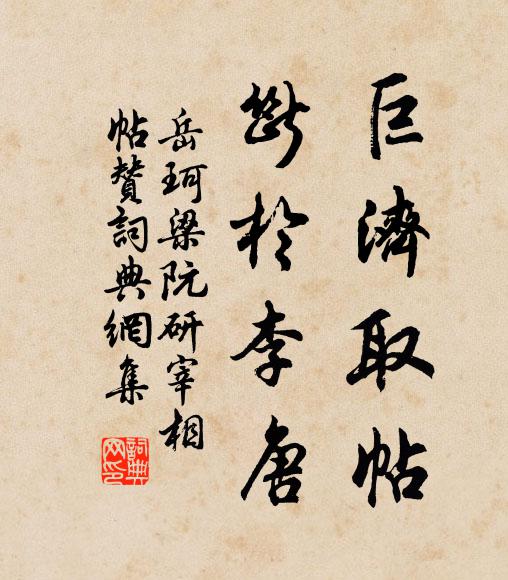 巨濟取帖
斷於李唐
岳珂梁阮研宰相
帖贊詞典網集
詞典网印